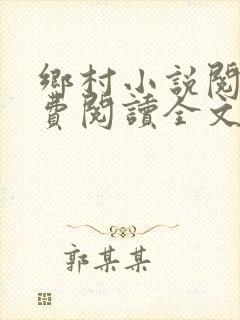 鄉村小説閱
費閱讀全文
郭某某